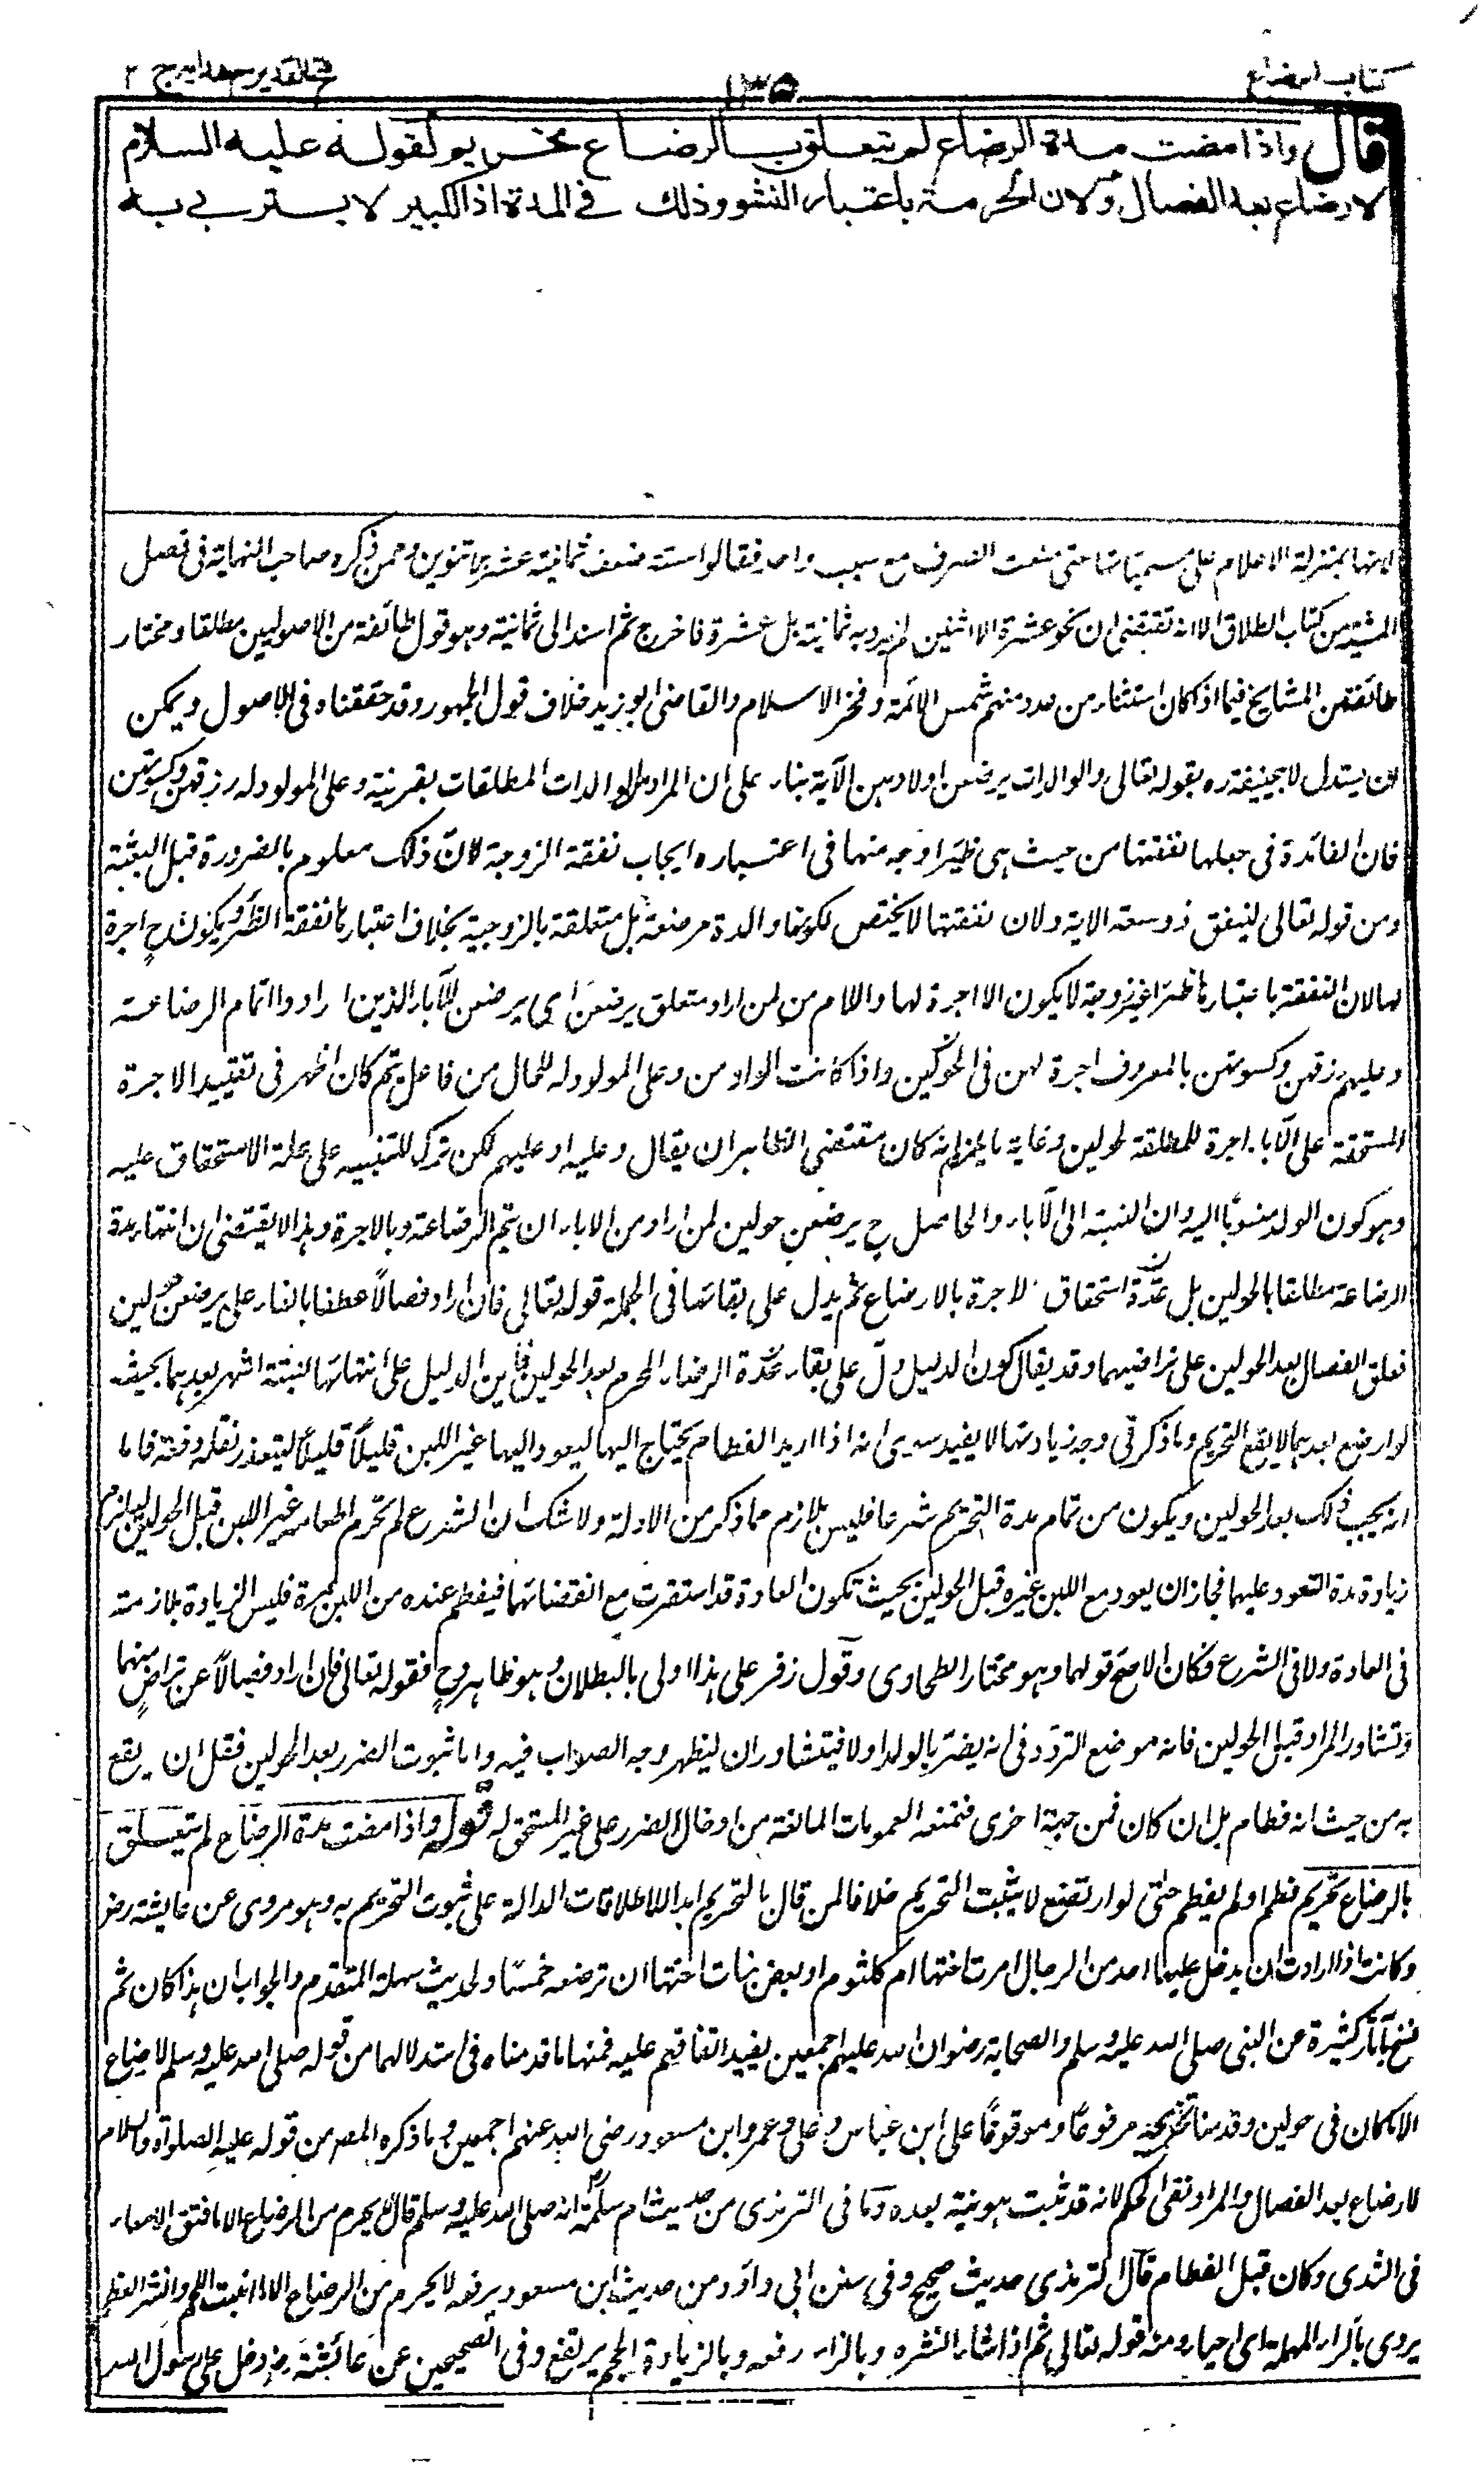 كتاب الرضاع
١٣٥
فتح القدير مع هدايه ج ٢
قال واذا مضت مدة الرضاع لم يتعلق بالرضاع تحريم لقوله عليه السلام
لا رضاع بعد الفصال ولان الحرمة باعتبار النشو وذلك في المدة اذ الكبير لا يتربى به
لانها بمنزلة الاعلام على مسمياتها حتى منعت الصرف مع سبب واحد فقالوا ستة ضعف ثمانية عشر بلا تنوين وممن ذكره صاحب النهاية فى فصل
المشية من كتاب الطلاق الا انه تقتضى ان نحو عشرة الا اثنين لم يرد به ثمانية بل عشرة فاخرج ثم اسند الى ثمانية وهو قول طائفة من الاصوليين مطلقا ومختار
طائفة من المشايخ فيما اذا كان استثناء من عدد منهم شمس الائمة وفخر الاسلام والقاضى ابو زيد خلاف قول الجمهور وقد حققناه فى الاصول ويمكن
ان يستدل لابيحنيفة ره بقوله تعالى والوالدات يرضعن اولادهن الآية بناء على ان المراد بالوالدات المطلقات بقرينة وعلى المولود له رزقهن وكسوتهن
فان الفائدة فى جعلها نفقتها من حيث هى ظئر اوجه منها فى اعتباره ايجاب نفقة الزوجة لان ذلك معلوم بالضرورة قبل البعثة
ومن قوله تعالى لينفق ذو سعة الاية ولان نفقتها لا يختص بكونها والدة مرضعة بل متعلقة بالزوجية بخلاف اعتبارها نفقة الظئر ويكون ح اجرة
لها لان النفقة باعتبارها ظئرا غير زوجة لا يكون الا اجرة لها واللام من لمن اراد متعلق يرضعن اى يرضعن للآباء الذين ارادوا اتمام الرضاعة
وعليهم رزقهن وكسوتهن بالمعروف اجرة لهن فى الحولين واذا كانت الواو من وعلى المولود له للحال من فاعل يتم كان اظهر فى تقييد الاجرة
المستحقة على الآباء اجرة للمطلقة لحولين وغاية ما يلزم انه كان مقتضى الظاهر ان يقال وعليه او عليهم لكن ترك للتنبيه على علة الاستحقاق عليه
وهو كون الولد منسوبا اليه وان النسبة الى الآباء والحاصل ح يرضعن حولين لمن اراد من الاباء ان يتم الرضاعة وبالاجرة وهذا لا يقتضى ان انتهاء مدة
الرضاعة مطلقا بالحولين بل مدة استحقاق الاجرة بالارضاع ثم يدل على بقائها فى الجملة قوله تعالى فان ارادا فصالا عطفا بالفاء على يرضعن حولين
فعلق الفصال بعد الحولين على تراضيهما وقد يقال كون الدليل دل على بقاء مدة الرضاع المحرم بعد الحولين فاين الدليل على انتهائها لستة اشهر بعدهما بحيث
لو ارضع بعدهما لا يقع التحريم وما ذكر فى وجه زيادتها لا يفيد سوى انه اذا اريد الفطام يحتاج اليها ليعود اليها غير اللبن قليلا قليلا ليتعذر نقله دفعة فاما
انه يجب ذلك بعد الحولين ويكون من تمام مدة التحريم شرعا فليس بلازم مما ذكر من الادلة ولا شك ان الشرع لم يحرم اطعامه غير اللبن قبل الحولين ليلزم
زيادة مدة التعود عليهما فجاز ان يعود مع اللبن غيره قبل الحولين بحيث تكون العادة قد استقرت مع انقضائهما فيفطم عنده من اللبن بمرة فليس الزيادة بلازمة
فى العادة ولا فى الشرع فكان الاصح قولهما وهو مختار الطحاوى وقول زفر على هذا اولى بالبطلان وهو ظاهر وح فقوله تعالى فان ارادا فصالا عن تراض منهما
وتشاور المراد قبل الحولين فانه موضع التردد فى انه يضر بالولد او لا فيتشاوران ليظهر وجه الصواب فيه واما ثبوت الضرر بعد الحولين فقل ان يقع
به من حيث انه فطام بل ان كان فمن جهة اخرى فتمنعه العمومات المانعة من ادخال الضرر على غير المستحق له قوله واذا مضت مدة الرضاع لم يتعلق
بالرضاع تحريم فطم او لم يفطم حتى لو ارتضع لا يثبت التحريم خلافا لمن قال بالتحريم ابدا للاطلاقات الدالة على ثبوت التحريم به وهو مروى عن عايشة رض
وكانت اذا ارادت ان يدخل عليها احد من الرجال امرت اختها ام كلثوم او بعض بنات اختها ان ترضعه خمسا ولحديث سهلة المتقدم والجواب ان هذا كان ثم
نسخ بآثار كثيرة عن النبى صلى الله عليه وسلم والصحابة رضوان الله عليهم اجمعين يفيد اتفاقهم عليه فمنها ما قدمناه فى استدلالهما من قوله صلى الله عليه وسلم لا رضاع
الا ما كان فى حولين وقد منا تخريجه مرفوعا وموقوفا على ابن عباس وعلى وعمر وابن مسعود رضى الله عنهم اجمعين وما ذكره المصر من قوله عليه الصلواة والسلام
لا رضاع بعد الفصال والمراد نفى الحكم لانه قد ثبت بعده وما فى الترمذى من حديث ام سلمة انه صلى الله عليه وسلم قال لا يحرم من الرضاع الا ما فتق الامعاء
فى الثدى وكان قبل الفطام قال الترمذى حديث صحيح وفى سنن ابى داؤد من حديث ابن مسعود يرفعه لا يحرم من الرضاع الا ما انبت اللحم وانشر العظم
يروى بالراء المهملة اى احياه ومنه قوله تعالى ثم اذا شاء انشره وبالزاء رفعه وبالزيادة الحجم يرتفع وفى الصحيحين عن عائشة رض دخل على رسول الله